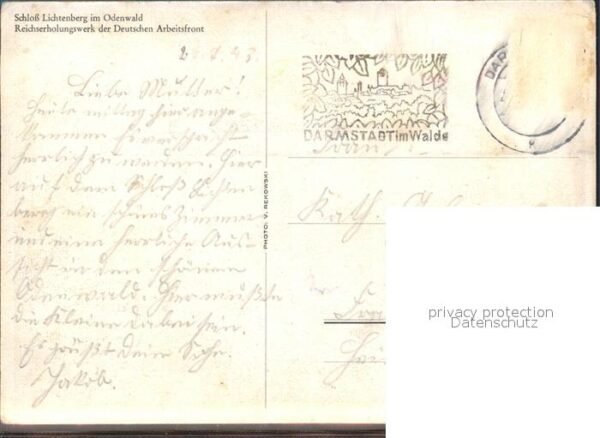 Schloß Lichtenberg im Odenwald
Reichserholungswerk der Deutschen Arbeitsfront
Liebe Mutter!
Heute mittag hier ange-
kommen
herrlich zu wandern. Hier
auf dem Schloß Lichten
berg ein schönes Zimmer
und eine herrliche Aus-
sicht in den schönen
Odenwald. Hier müßte
die Kleine dabei sein.
Es grüßt Dein Sohn
Jakob.
PHOTO: V. REKOWSKI
DARMSTADT im Walde
DAR
Frau
Kath.
privacy protection
Datenschutz